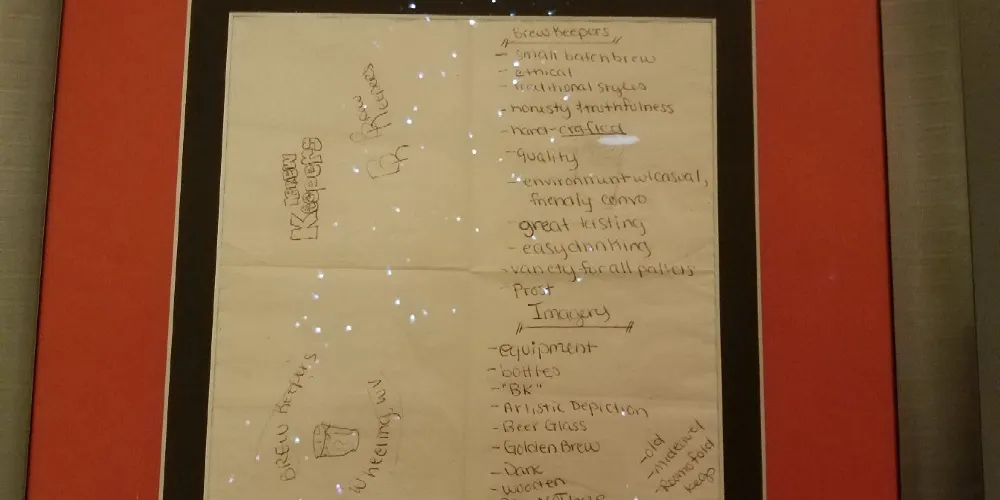 Brew Keepers
- small batch brew
- ethical
- traditional styles
- honesty & truthfulness
- hand-crafted
- quality
- environment w/ casual,
friendly convo
- great tasting
- easy drinking
- variety for all pallets
- Prost
Imagery
- equipment
- bottles
- "BK"
- Artistic Depiction
- Beer Glass
- Golden Brew
- Dark
- wooden
- old
Brew
Keepers
Keepers
BREW Keepers
Wheeling, WV